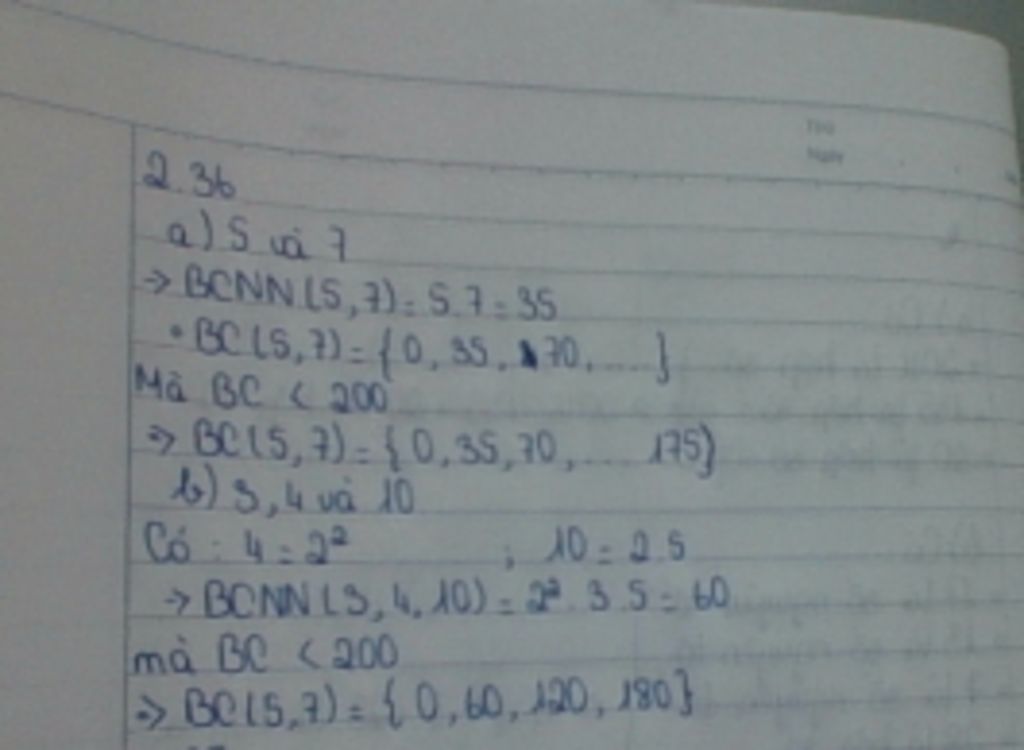 Thứ
Ngày
2.36
a) 5 và 7
→ BCNN(5,7) = 5.7 = 35
• BC(5,7) = {0, 35, 70, .... }
Mà BC < 200
⇒ BC(5,7) = {0, 35, 70, ... 175}
b) 3, 4 và 10
Có : 4 = 2² ; 10 = 2.5
→ BCNN(3, 4, 10) = 2².3.5 = 60
mà BC < 200
⇒ BC(5,7) = {0, 60, 120, 180}